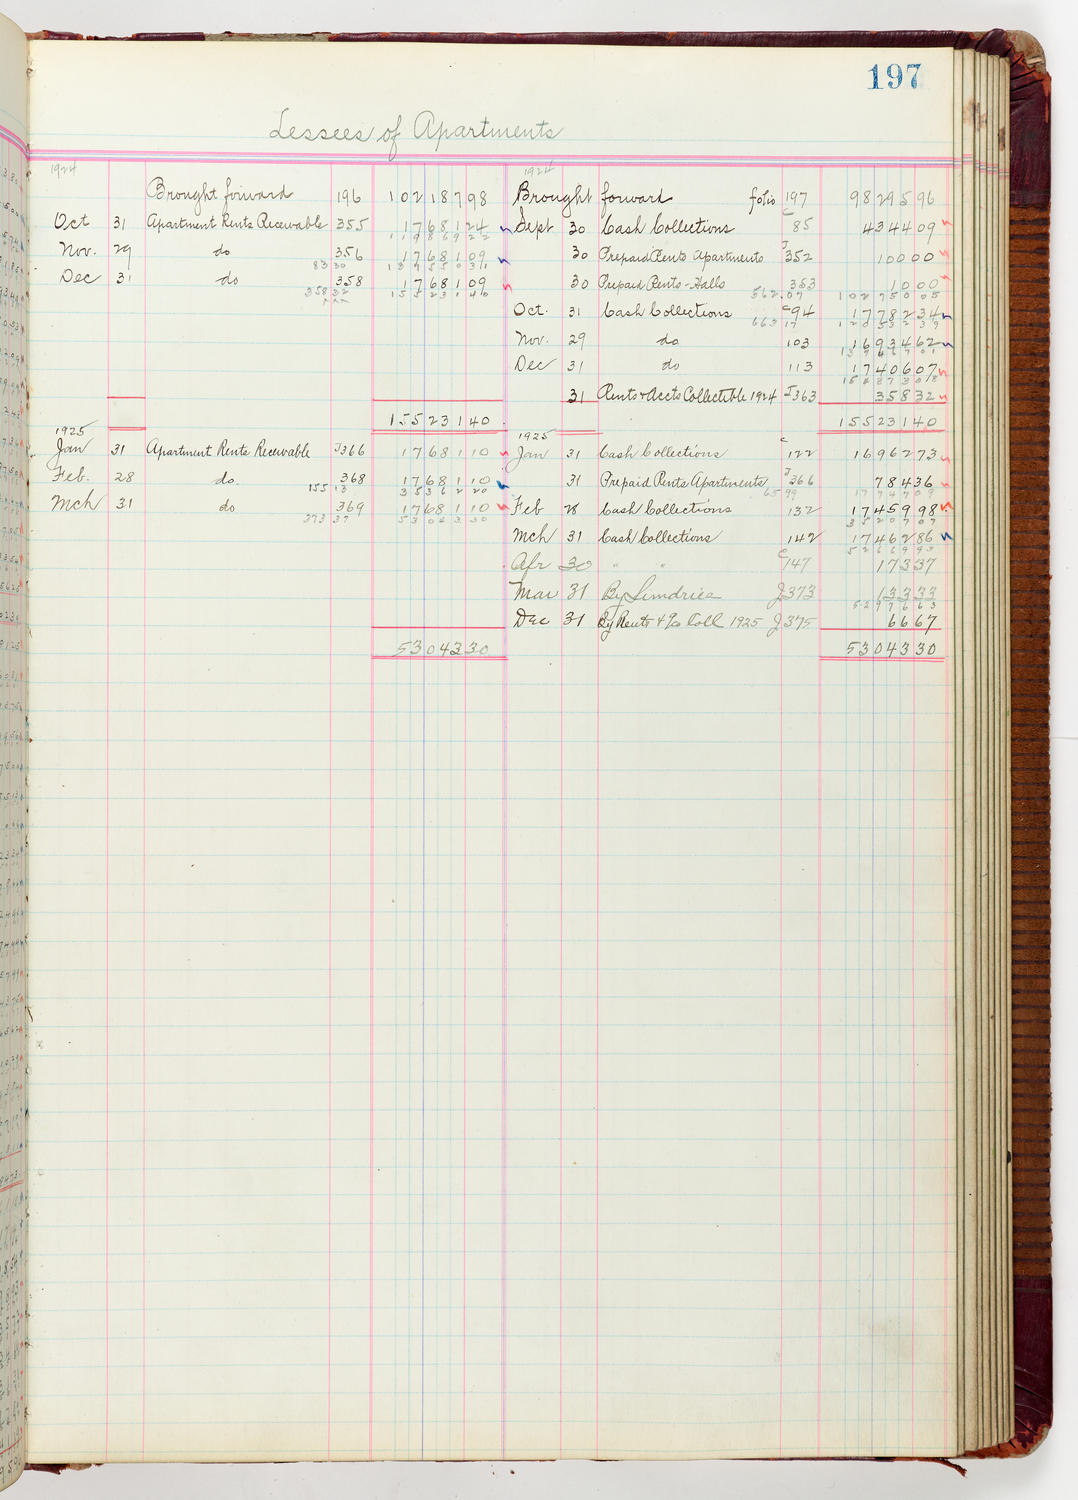 197
Lessees of Apartments
1924 1924
Brought forward 196 10218798 Brought forward folio 197 9829596
Oct 31 Apartment Rents Receivable 355 1768124 Sept 30 Cash Collections C85 434409
11986922
Nov. 29 do 356 1768109 30 Prepaid Rents Apartments J352 10000
8330 13755031
Dec 31 do 358 1768109 30 Prepaid Rents-Halls 353 1000
35832 15523140 562.07 10275005
Oct. 31 Cash Collections C94 1778234
663 17 12053239
Nov. 29 do 103 1693462
13746701
Dec 31 do 113 1740607
15487308
31 Rents & Accts Collectible 1924 J363 35832
15523140 15523140
1925 1925
Jan 31 Apartment Rents Receivable J366 1768110 Jan 31 Cash Collections C122 1696273
Feb. 28 do. 368 1768110 31 Prepaid Rents Apartments J366 78436
155 13 3536220 6599 1774709
Mch 31 do 369 1768110 Feb 28 Cash Collections 132 1745998
373 37 5304330 3520707
Mch 31 Cash Collections 142 1746286
5266993
Apr 30 " " C147 17337
Mar 31 By Sundries J373 13333
5297663
Dec 31 By Rents & % Coll 1925 J375 6667
5304330 5304330